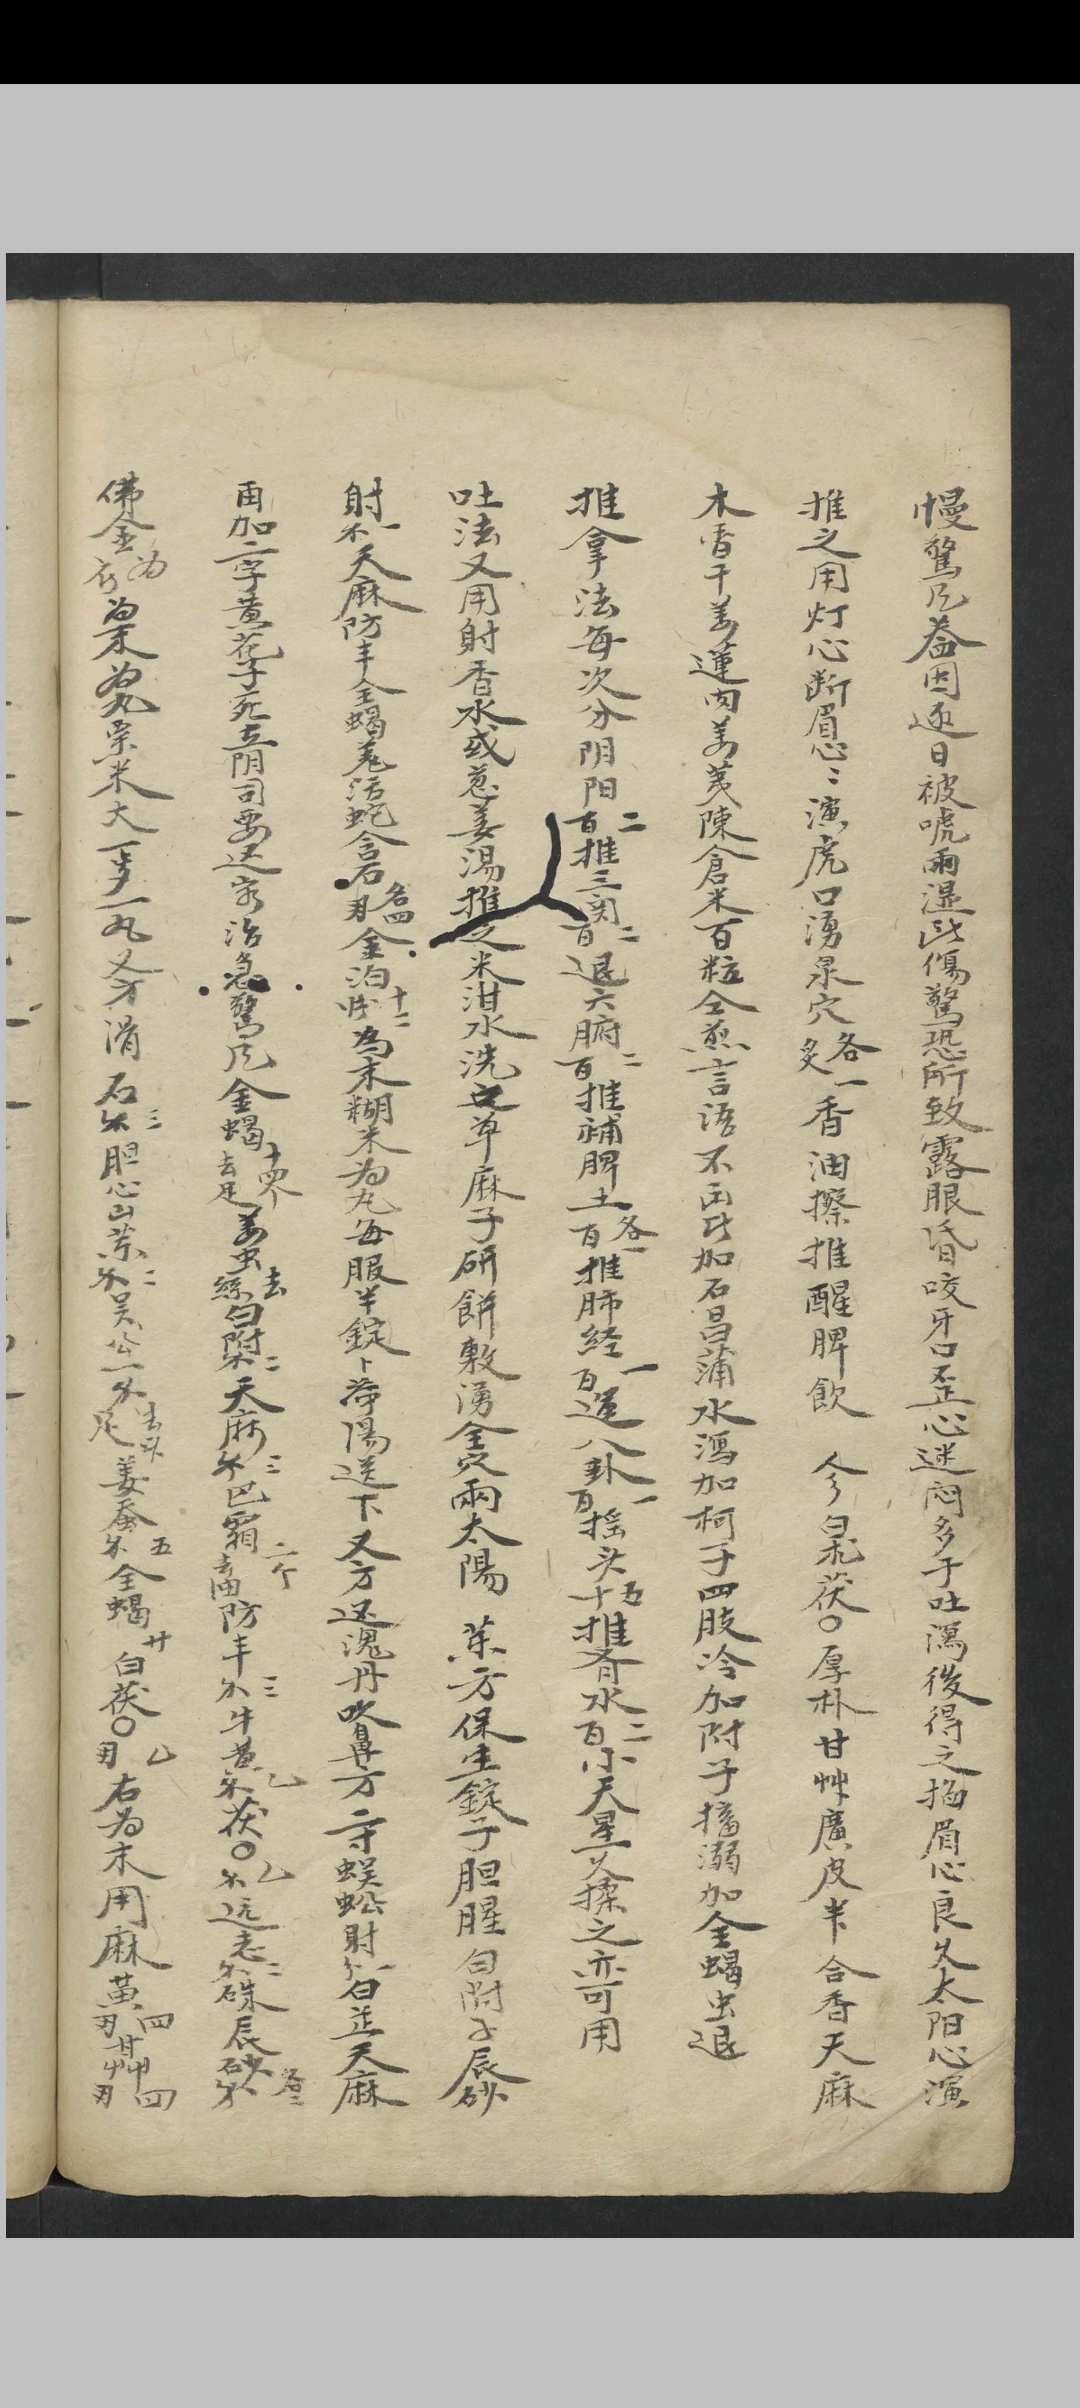 慢驚風蓋因逐日被唬雨濕此傷驚恐所致露眼昏咬牙口歪心迷悶多于吐瀉後得之掐眉心良久太阳心演
推之用灯心断眉心〻演虎口湧泉穴各一炙香油擦推醒脾飲 人参白朮茯〇厚朴甘艸廣皮半下合香天麻
木香干姜蓮肉姜蚕陳倉米百粒仝煎言语不出此加石昌蒲水瀉加柯子四肢冷加附子搐溺加全蝎虫退
推拿法每次分阴阳二百推三関二百退六腑二百推補脾土各一百推肺経一百運八卦一百揺头五十推肾水二百小天星火揉之亦可用
吐法又用射香水或葱姜湯推之米泔水洗之草麻子研餅敷湧全穴兩太陽 藥方保生錠子胆腥白附子辰砂
射一天麻防丰全蝎羗活蛇含石各四金泊十二片為末糊米为丸每服半錠卜荷湯送下又方还魂丹吹鼻方二寸蜈蚣射一白芷天麻
再加二字黄花子死在阴司要还家治急驚风金蝎十四个去足姜虫去絲白附二天麻三巴霜二个去油防丰三牛黄乙茯〇乙远志二硃辰砂各二
佛金为衣为末为丸粟米大一岁一丸又方滑石三胆心二全蝎廿白茯〇乙右为末用麻黄四甘艸四